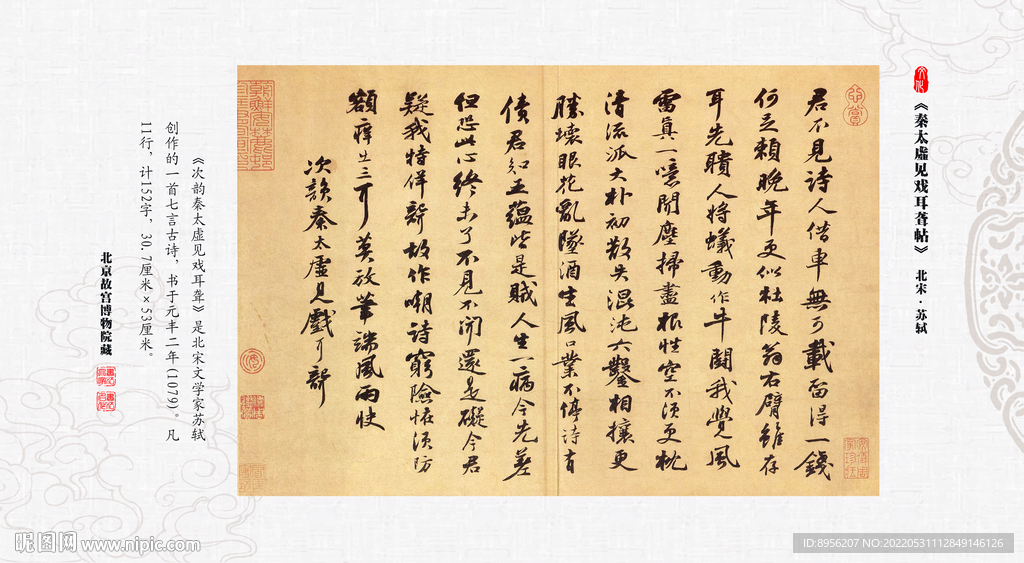 文化
《秦太虛见戏耳聋帖》 北宋·苏轼
君不見詩人借車無可載留得一錢
何足賴晚年更似杜陵翁右臂雖存
耳先聵人將蟻動作牛鬪我覺風
雷真一噫聞塵掃盡根性空不須更枕
清流派大朴初散失混沌六鑿相攘更
勝壞眼花亂墜酒生風口業不停詩有
債君知五蘊皆是賊人生一病今先差
但恐此心終未了不見不聞還是礙今君
疑我特佯聾故作嘲詩窮險怪須防
額癢出三耳莫放筆端風雨快
次韻秦太虛見戲耳聾
《次韵秦太虚见戏耳聋》是北宋文学家苏轼
创作的一首七言古诗，书于元丰二年(1079)。凡
11行，计152字，30.7厘米×53厘米。
北京故宫博物院藏
昵图网 www.nipic.com
ID:8956207 NO:20220531112849146126